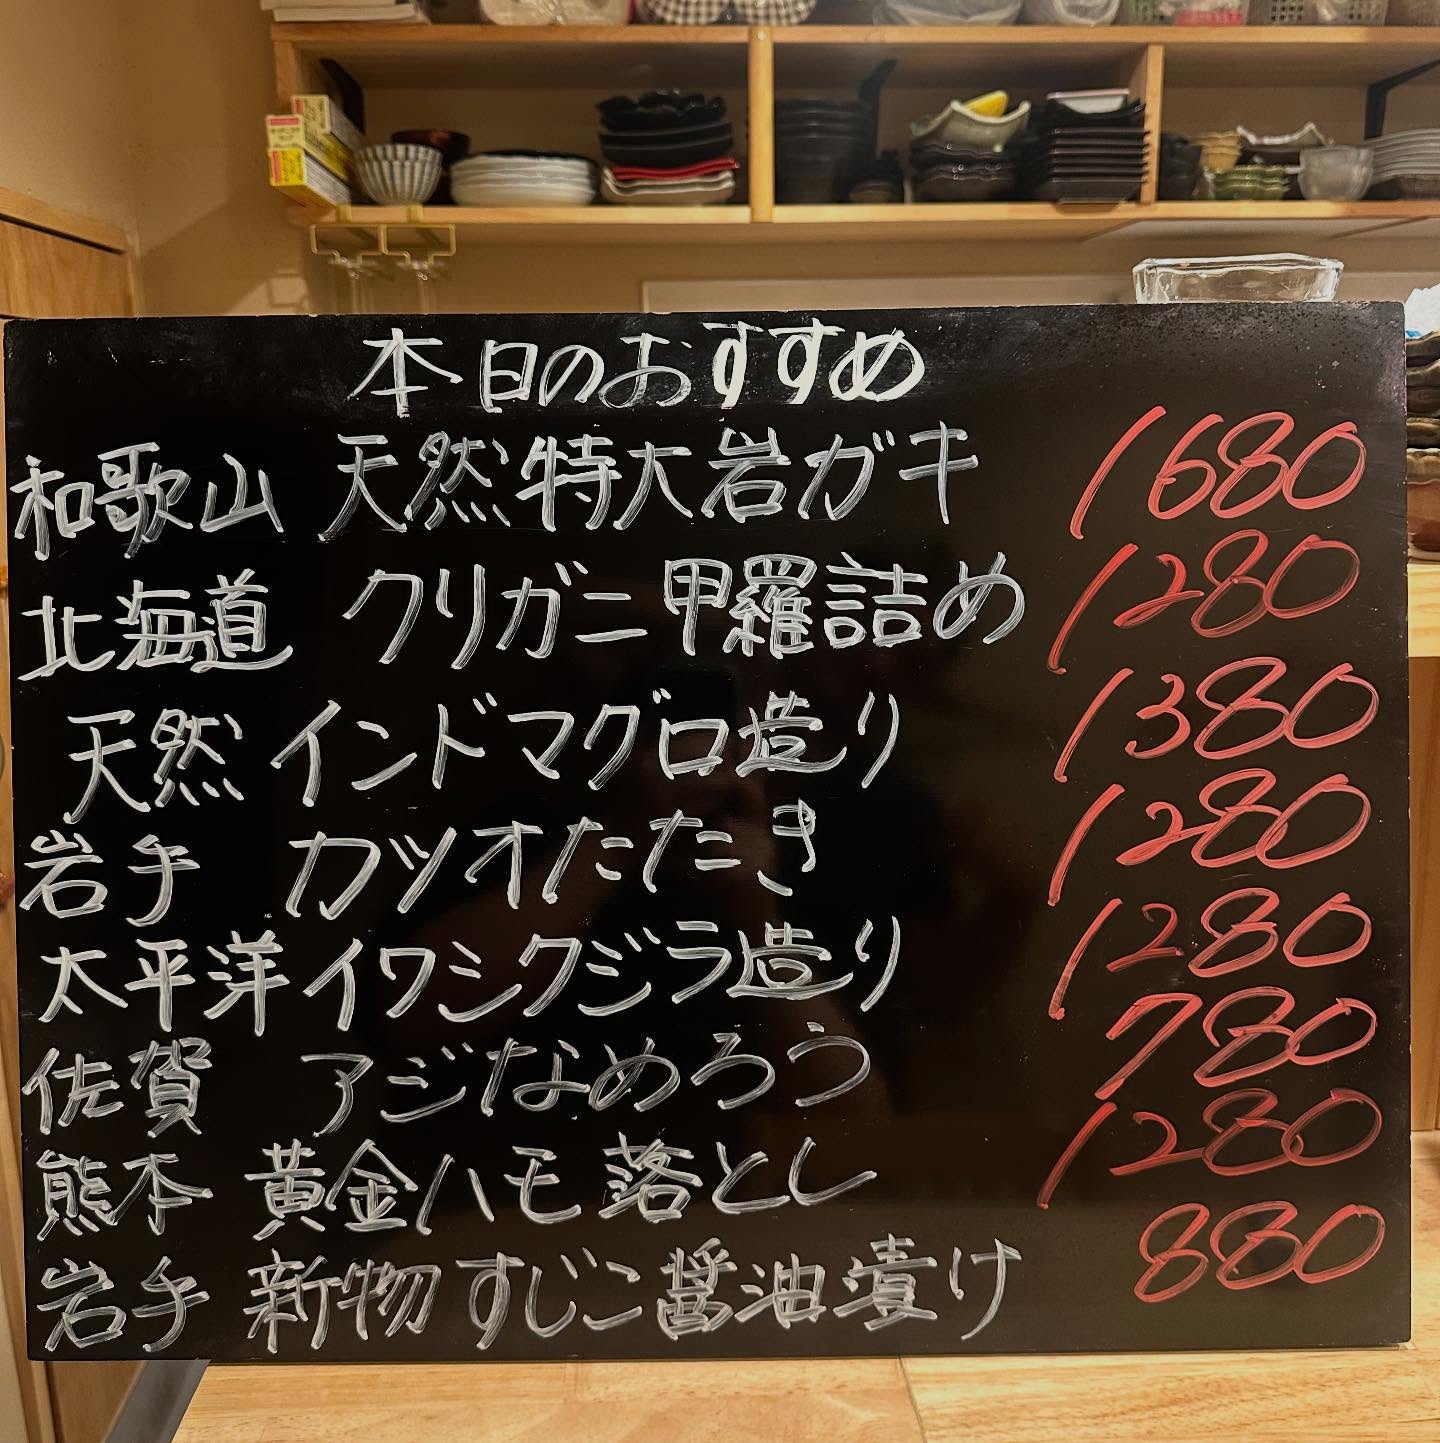 本日のおすすめ
和歌山 天然特大岩ガキ 1680
北海道 クリガニ甲羅詰め 1280
天然 インドマグロ造り 1380
岩手 カツオたたき 1280
太平洋 イワシクジラ造り 1280
佐賀 アジなめろう 780
熊本 黄金ハモ落とし 1280
岩手 新物すじこ醤油漬け 880